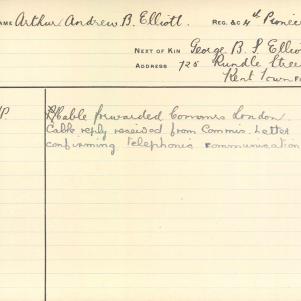 AME Arthur Andrew B. Elliott. REG. &C 4th Pionee
NEXT OF KIN George B. S. Elliot
ADDRESS 725 Rundle Stree
Kent Town
P R/Cable forwarded Commrs London.
Cable reply received from Commis. Letter
confirming telephonic communication